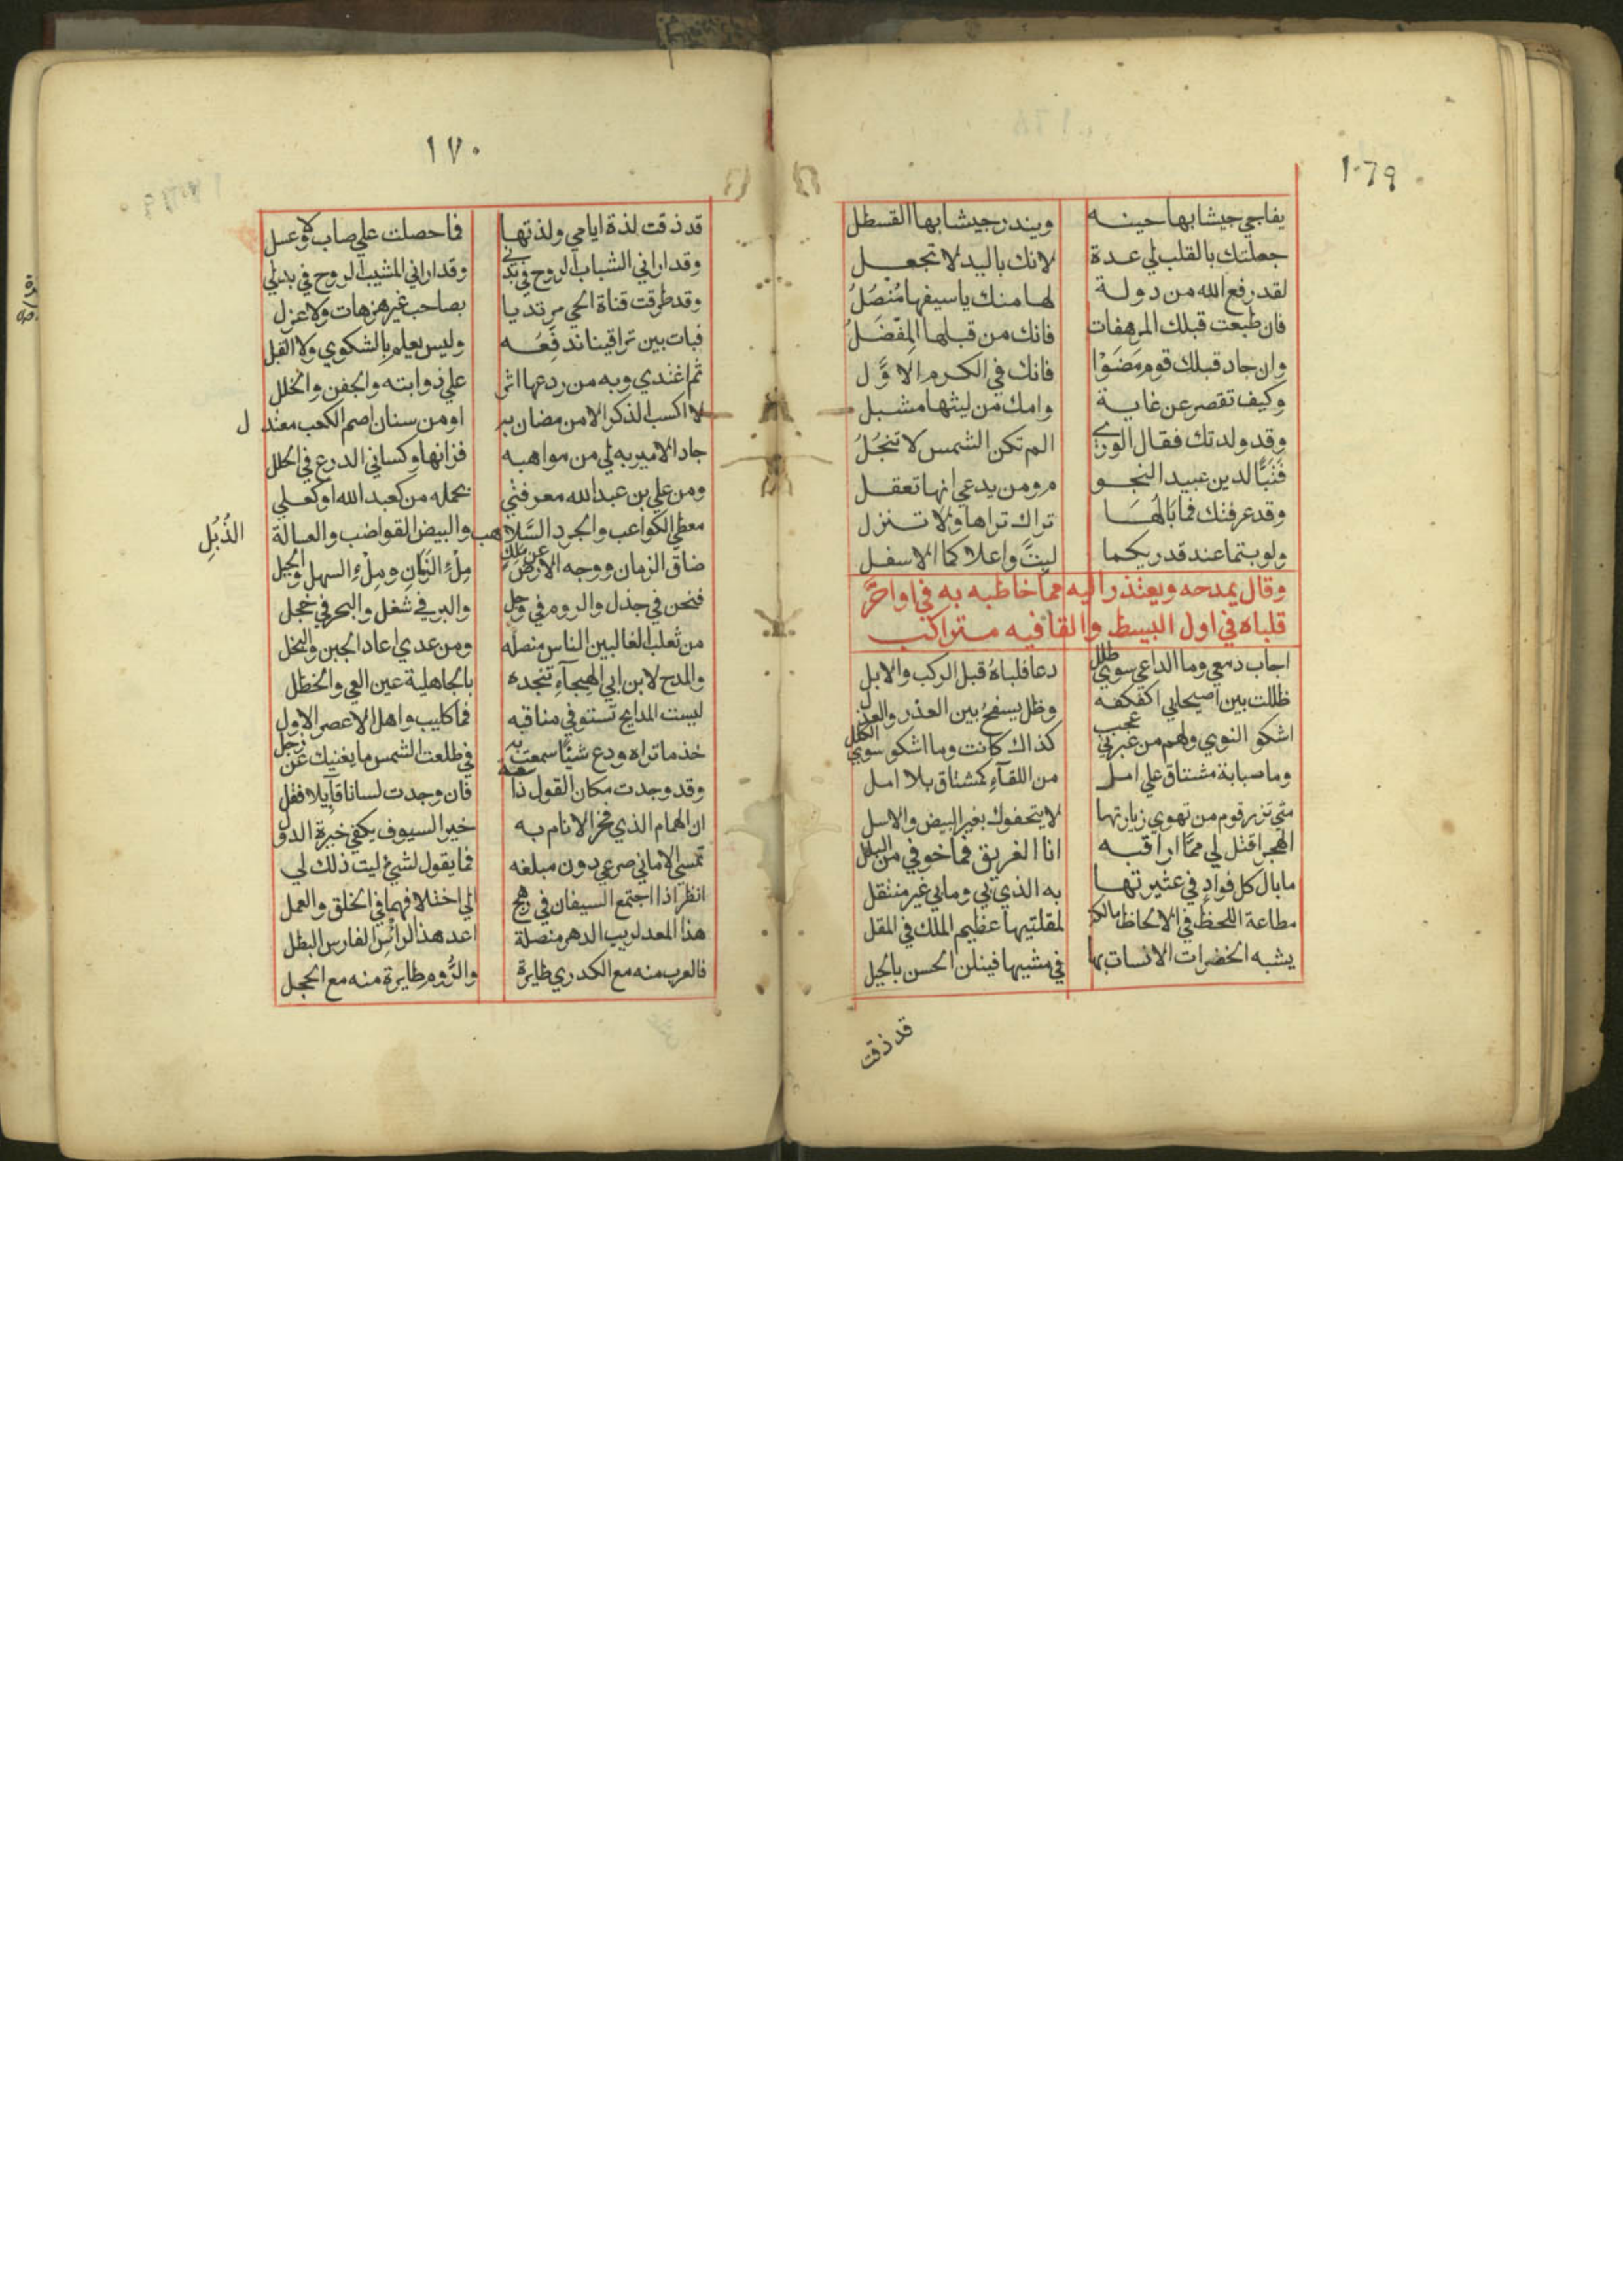 ١٠٦٩
يفاجي جيشا بها حينه وينذر جيشا بها القسطل
جعلتك بالقلب لي عدة لانك باليد لا تجعل
لقد رفع الله من دولة لها منك ياسيفها مُنصَلُ
فان طبعت قبلك المرهفات فانك من قبلها المِفْضَلُ
وان جاد قبلك قوم مَضَوْا فانك في الكرم الاوَّل
وكيف تقصر عن غاية وامك من ليثها مشبل
وقد ولدتك فقال الوري الم تكن الشمس لا تنجُلُ
فَتَبًّا لدين عبيد النجو م ومن يدعي انها تعقل
وقد عرفتك فما بَالُهَا تراك تراها ولا تنزل
ولو بتما عند قدريكما لبتَّ واعلاكما الاسفل
وقال يمدحه ويعتذر اليه مما خاطبه به في واحَرَّ
قلباه في اول البسيط والقافيه متراكب
اجاب دمعي وما الداعي سوي طلل دعا فلباهُ قبل الركب والابل
ظللت بين اصيحابي اكفكفه وظل يسفحُ بين العذر والعذل
اشكو النوي ولهم من عبرتي عجب كذاك كانت وما اشكو سوي الكلل
وما صبابة مشتاق علي امل من اللقآءِ كمشتاق بلا امل
متي تزر قوم من تهوي زيارتها لا يتحفوك بغير البيض والاسل
الهجر اقتل لي ممَّا اراقبه انا الغريق فما خوفي من البلل
ما بال كل فوادٍ في عشيرتها به الذي بي وما بي غير منتقل
مطاعة اللحظ في الالحاظ مالكة لمقلتيها عظيم الملك في المقل
يشبه الخفرات الانسات بها في مشيها فينلن الحسن بالحيل
قد ذقت
١٧٠
قد ذقت لذة ايامي ولذتها فما حصلت علي صاب ولا عسل
وقد اراني الشباب الروح في بدني وقد اراني المشيب الروح في بدلي
وقد طرقت فتاة الحي مرتديا بصاحب غير عزهات ولا عزل
فبات بين تراقينا ندفعَه وليس يعلم بالشكوي ولا القبل
ثم اغتدي وبه من ردعها اثر علي ذوابته والجفن والخلل
لا اكسب الذكر الا من مضاربه او من سنان اصم الكعب معتدل
جاد الامير به لي من مواهبه فزانها وكساني الدرع في الحلل
ومن علي بن عبد الله معرفتي بحمله من كعبد الله او كعلي
معطي الكواعب والجرد السَّلاهب والبيض القواضب والعسالة الذُبُلِ
ضاق الزمان ووجه الارض عن ملكٍ مِلْءِ الزَمانِ ومِلْءِ السهل والجبل
فنحن في جذل والروم في وجل والبر في شغل والبحر في خجل
من تغلب الغالبين الناس منصله ومن عدي اعاد الجبن والبخل
والمدح لابن ابي الهيجآءِ تنجده بالجاهلية عين العي والخطل
ليست المدايح تستوفي مناقبه فما كليب واهل الاعصر الاول
خذ ما تراه ودع شيئًا سمعت به في طلعت الشمس ما يغنيك عن زحل
وقد وجدت مكان القول ذا سعة فان وجدت لسانا قآيلا فقل
ان الهمام الذي فخر الانام به خير السيوف بكفي خيرة الدول
تمسي الاماني صرعي دون مبلغه فما يقول لشيء ليت ذلك لي
انظر اذا اجتمع السيفان في رهج الي اختلافهما في الخلق والعمل
هذا المعد لريب الدهر منصلة اعد هذا لرائسِ الفارس البطل
فالعرب منه مع الكدري طايرة والرُّوم طايرة منه مع الحجل